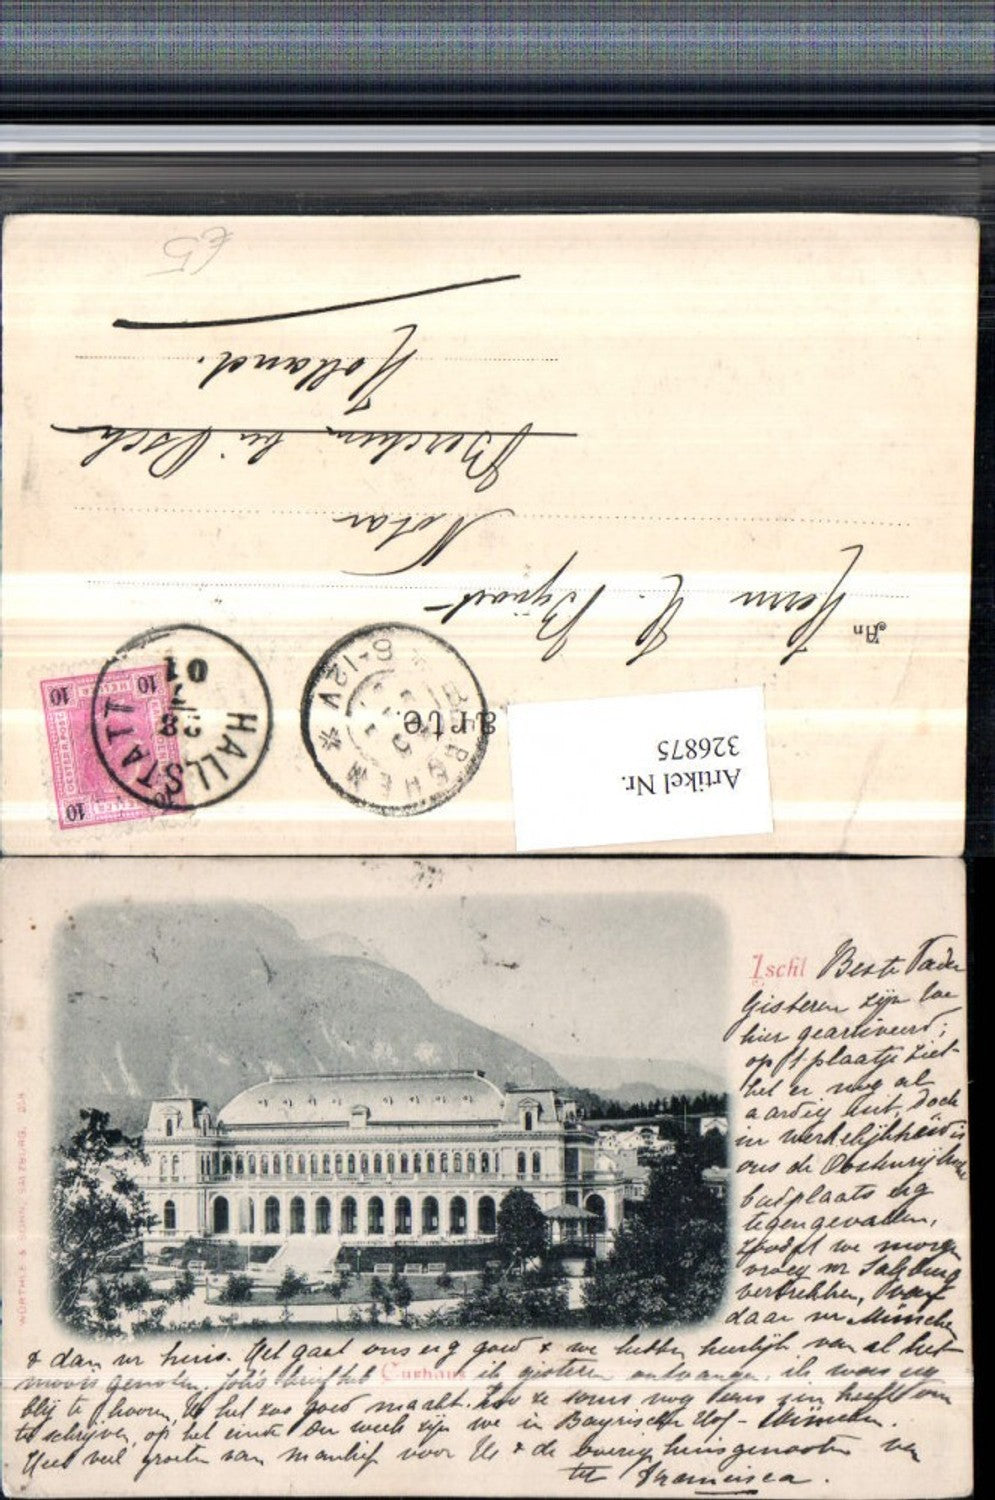 £5
An
Herrn H. Bijvoet
Notar
Berchem bij Osch
Holland.
arte
Artikel Nr.
326875
HALLSTATT
28
7
01
BERGHEM
8-12V
10 HELLER 10
10 HELLER 10
Ischl Beste Vader
Gisteren zijn we
hier gearriveerd;
op 't plaatje ziet
het er nog al
aardig uit, doch
in werkelijkheid is
ons de Oostenrijksche
badplaats erg
tegengevallen,
zoodat we morgen
vroeg nr Salzburg
vertrekken, van
daar nr München
& dan nr huis. Het gaat ons erg goed & we hebben heerlijk van al het
moois genoten. Jo's brief heb Curhaus ik gisteren ontvangen, ik was erg
blij te hooren, dat het zoo goed maakt. Zou ze soms nog eens zin heeft om
te schrijven, op het einde der week zijn we in Bayrischer Hof - München.
Heel veel groeten van manlief voor U & de overige huisgenooten en
tt Francisca.
WÜRTHLE & SOHN, SALZBURG. 204